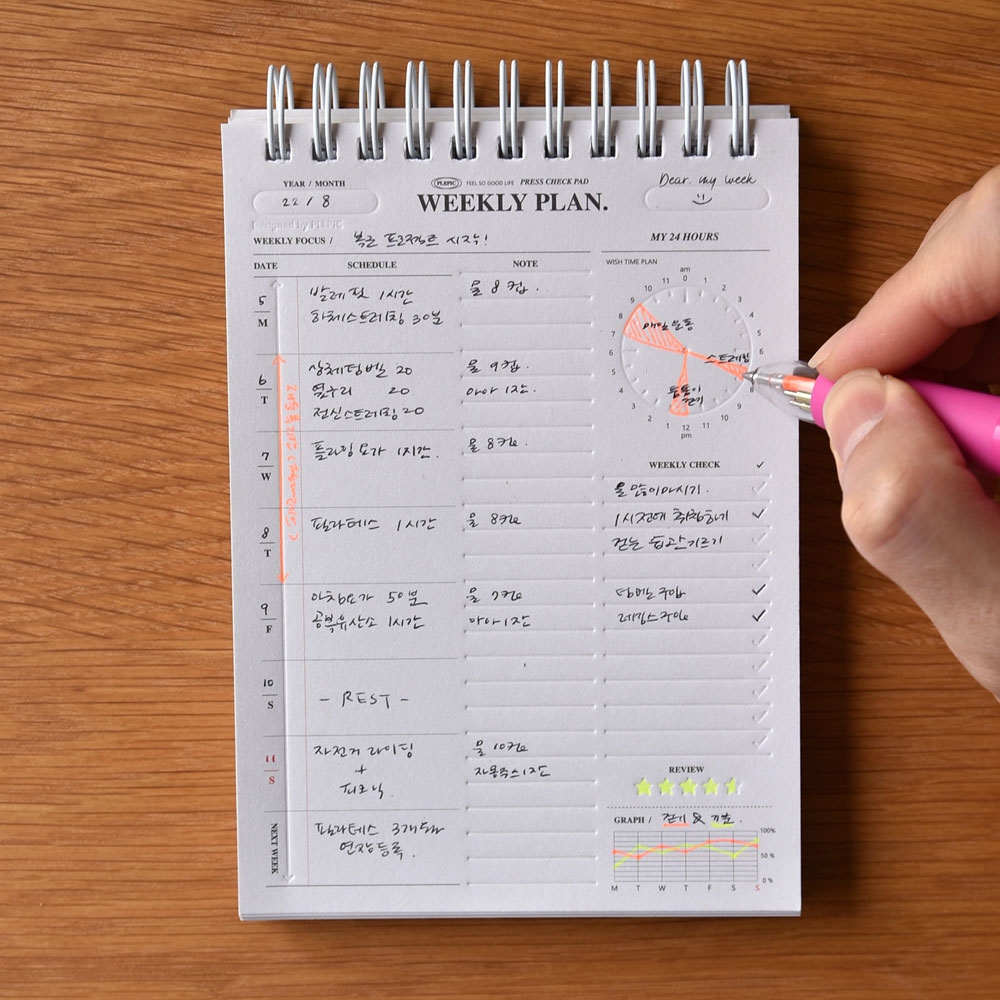 YEAR / MONTH
22 / 8
PLEPIC FEEL SO GOOD LIFE PRESS CHECK PAD
WEEKLY PLAN.
Dear. my week
Designed by PLEPIC
WEEKLY FOCUS / 복근 프로젝트 시작!
DATE SCHEDULE NOTE
5
M
발레핏 1시간
하체스트레칭 30분
물 8컵.
6
T
상체덤벨 20
옆구리 20
전신스트레칭 20
물 9컵.
아아 1잔.
7
W
플라잉요가 1시간.
물 8컵
8
T
필라테스 1시간
물 8컵
9
F
아침요가 50분
공복유산소 1시간
물 7컵
아아 1잔
10
S
- REST -
11
S
자전거 라이딩
+
피크닉.
물 10컵
자몽주스 1잔
NEXT WEEK
필라테스 3개월
연장등록.
MY 24 HOURS
WISH TIME PLAN
am
0
1
2
3
4
5
6
8
9
10
11
12
pm
1
2
3
4
5
6
7
8
9
10
11
매일운동
스트레칭
틈틈이
걷기
WEEKLY CHECK
물 많이마시기.
1시전에 취침하기
걷는 습관기르기
덤벨구입
레깅스구입
REVIEW
GRAPH / 걷기 & 기분.
100%
50 %
0 %
M T W T F S S